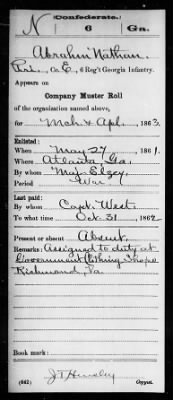 (Confederate.)
N 6 Ga.
Abraham Nathan
Pri., Co. E, 6 Reg't Georgia Infantry.
Appears on
Company Muster Roll
of the organization named above,
for Mch & Apl, 1863.
Enlisted:
When May 27, 1861.
Where Atlanta, Ga.
By whom Maj. Elzey
Period War
Last paid:
By whom Capt. West
To what time Oct. 31, 1862
Present or absent Absent.
Remarks: Assigned to duty at
Government Clothing Shops
Richmond, Va
Book mark:
(642) J T Hensley Copyist.